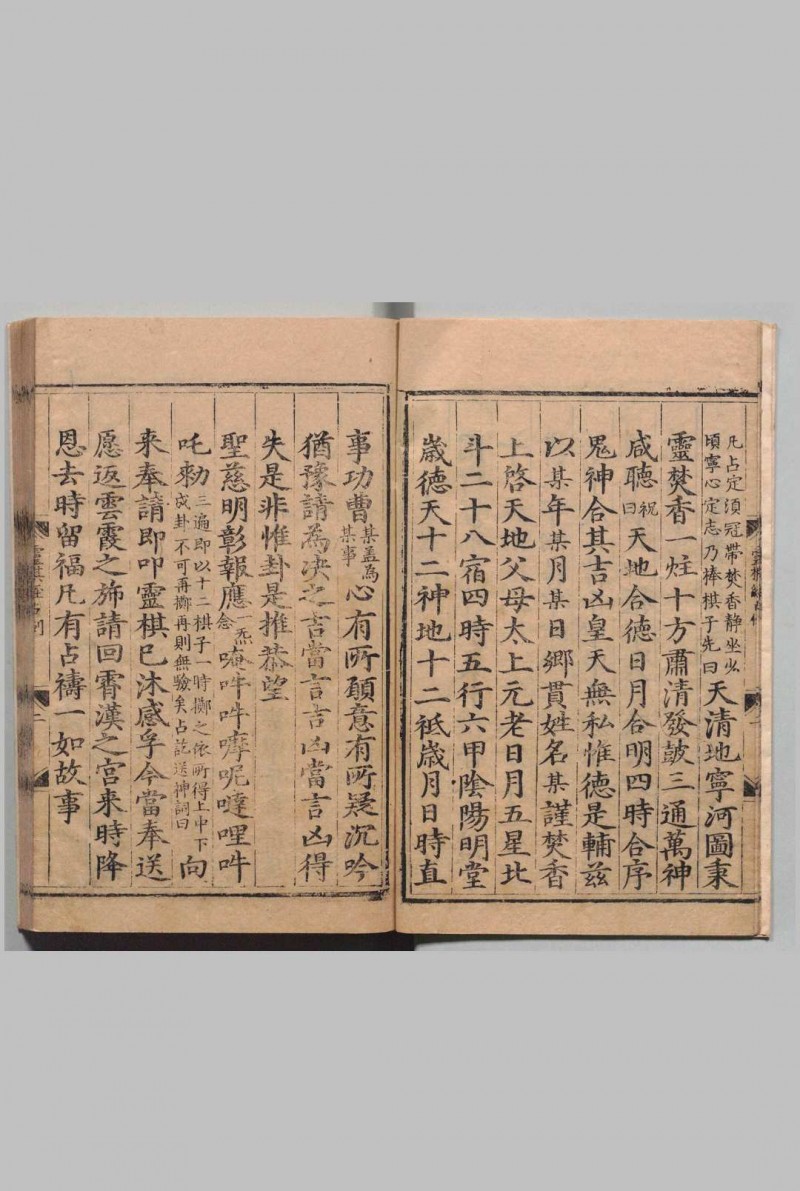 凡占定須冠帶焚香静坐少頃寧心定志乃捧棋子先曰天清地寧河圖秉
靈焚香一炷十方肅清發鼓三通萬神
咸聽祝曰天地合德日月合明四時合序
鬼神合其吉凶皇天無私惟德是輔兹
以某年某月某日鄉貫姓名某謹焚香
上啓天地父母太上元老日月五星北
斗二十八宿四時五行六甲陰陽明堂
歲德天十二神地十二祇歲月日時直
事功曹某盖為某事心有所願意有所疑沉吟
猶豫請為决之言當言吉凶當言凶得
失是非惟卦是推恭望
聖慈明彰報應一炁念唵吽吽嚌呢噠哩吽
吒勑三遍即以十二棋子一時擲之依所得上中下成卦不可再擲再則無驗矣占訖送神詞曰向
来奉請即叩靈棋已沐感孚今當奉送
愿返雲霞之旆請回霄漢之宮来時降
恩去時留福凡有占禱一如故事